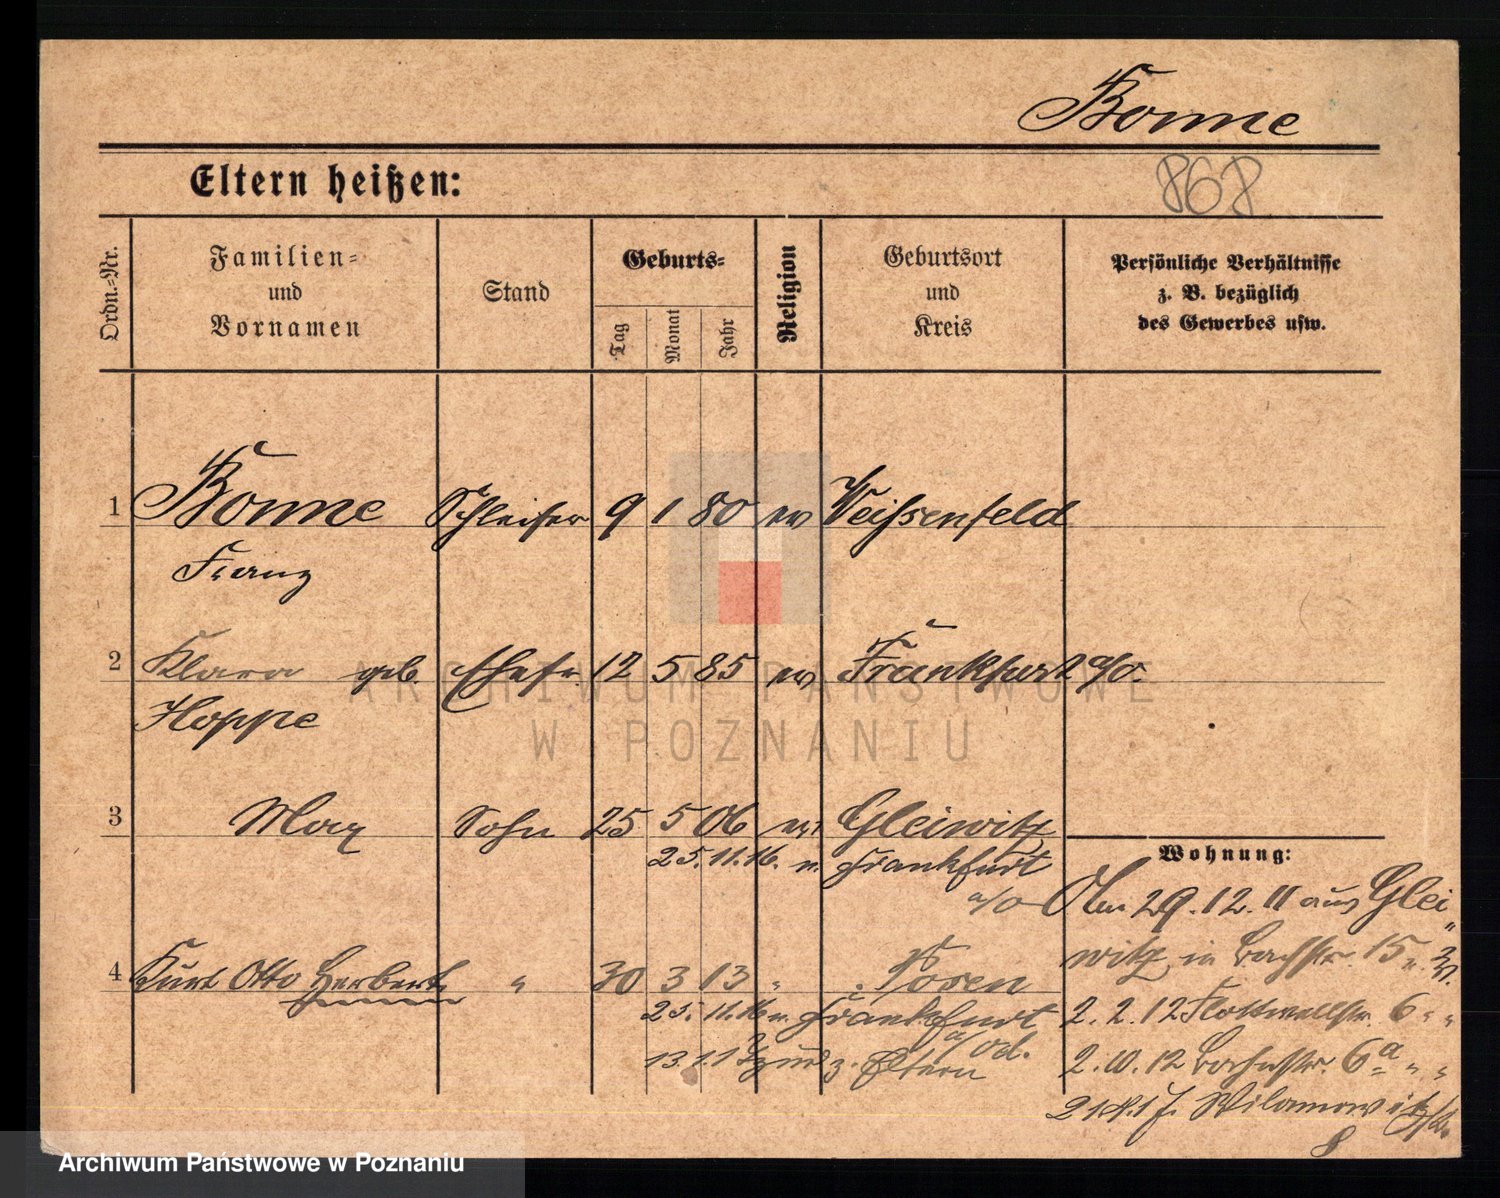 Bonne
868
Eltern heißen:
Ordn.-Nr.
Familien-
und
Vornamen
Stand
Geburts-
Tag
Monat
Jahr
Religion
Geburtsort
und
Kreis
Persönliche Verhältnisse
z. B. bezüglich
des Gewerbes usw.
1 Bonne Schleifer 9 1 80 ev Weissenfeld
Franz
2 Klara geb. Ehefr. 12 5 85 ev Frankfurt a/o.
Hoppe
3 Max Sohn 25 5 06 ev Gleiwitz
25. 11. 16. n. Frankfurt
a/o
Wohnung:
29. 12. 11 aus Glei
witz in Bachstr. 15
4 Kurt Otto Herbert " 30 3 13 " Posen
25. 11. 16 n. Frankfurt
a/Od.
13. 1. 1 z. Eltern
2. 2. 12 Flottwellstr. 6 " "
2. 10. 12 6a " "
8
ARCHIWUM PAŃSTWOWE
W POZNANIU
Archiwum Państwowe w Poznaniu